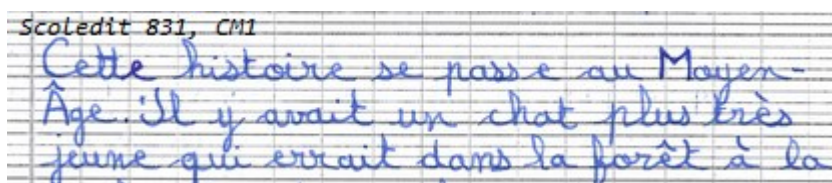 Scoledit 831, CM1
Cette histoire se passe au Moyen-
Âge. Il y avait un chat plus très
jeune qui errait dans la forêt à la